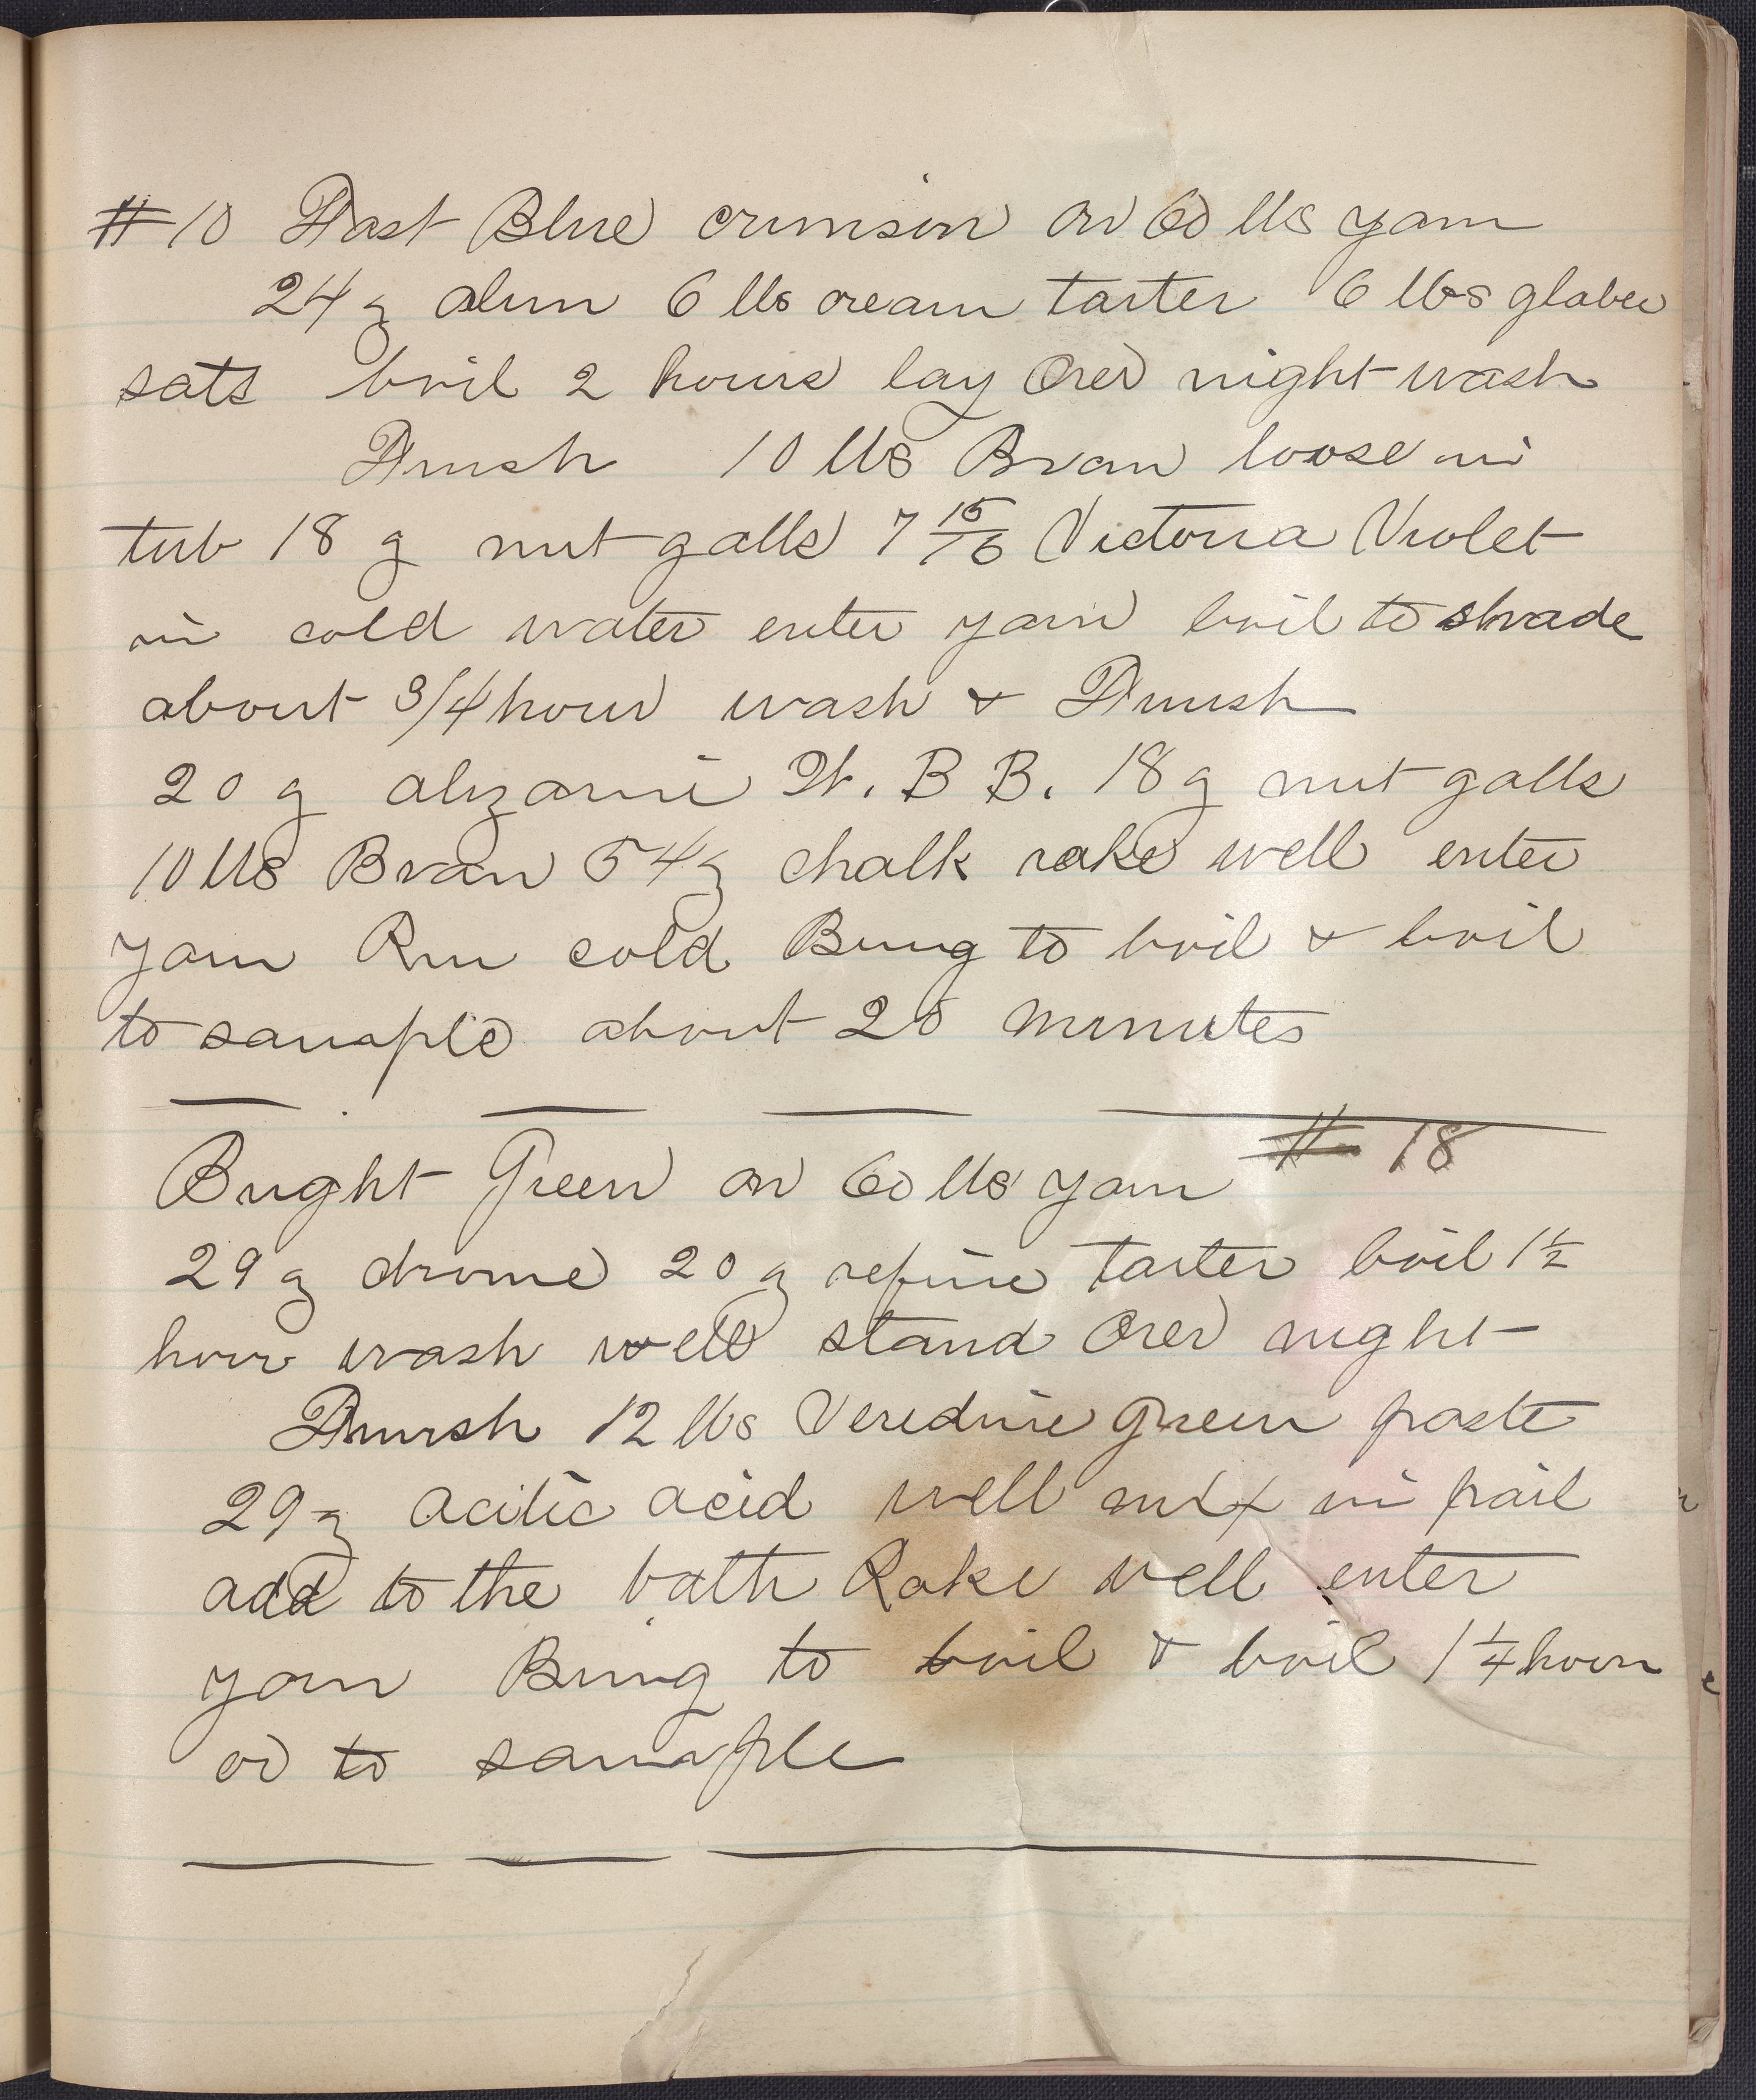 #10 Fast Blue crimson on 60 lbs yarn
24 g alum 6 lbs cream tarter 6 lbs glaber
sats boil 2 hours lay over night wash
Finish 10 lbs Bran loose in
tub 18 g nut galls 7 15/16 Victoria Violet
in cold water enter yarn boil to shade
about 3/4 hour wash & Finish
20 g alizarin W. B B. 18 g nut galls
10 lbs Bran 54 g chalk rake well enter
yarn Run cold Bring to boil & boil
to sample about 20 minutes
# 18
Bright Green on 60 lbs yarn
29 g chrome 20 g refine tarter boil 1 1/2
hour wash well stand over night
Finish 12 lbs Veredine green paste
29 g acitic acid well mix in pail
add to the bath Rake well enter
yarn Bring to boil & boil 1 1/4 hour
or to sample